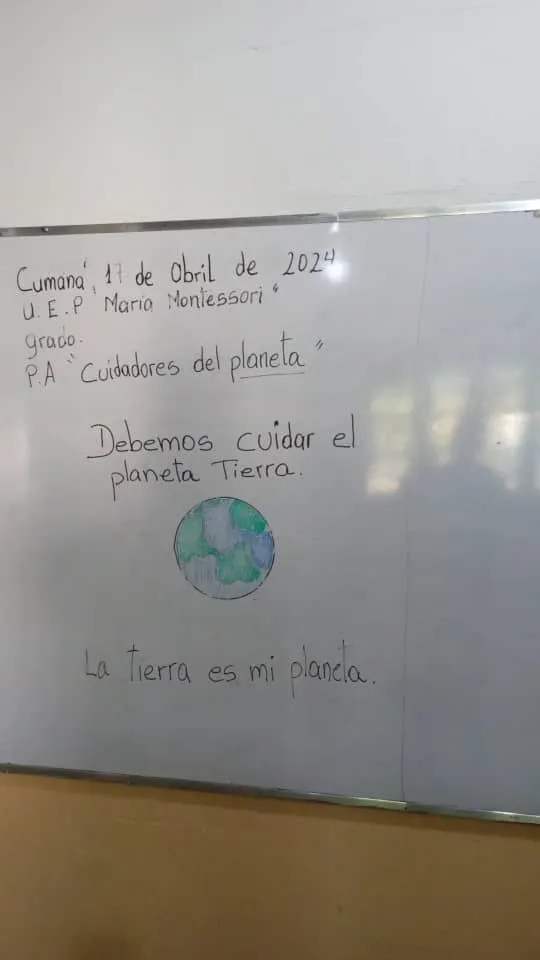 Cumaná, 17 de Obril de 2024
U.E.P "Maria Montessori"
grado.
P.A "Cuidadores del planeta"
Debemos cuidar el
planeta Tierra.
La tierra es mi planeta.